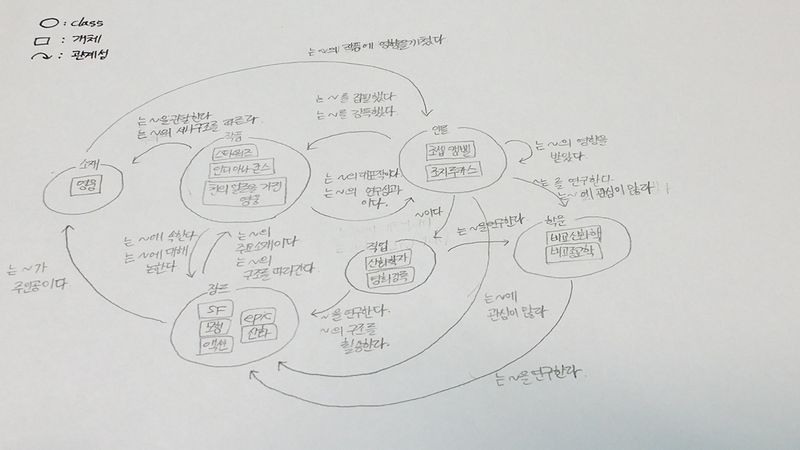 ○ : class
□ : 개체
↷ : 관계성
는 ~의 작품에 영향을 끼쳤다
는 ~을 전달한다
는 ~의 서사구조를 따른다
는 ~를 집필했다
는 ~를 감독했다
소재
영웅
작품
스타워즈
인디아나 존스
천의 얼굴을 가진
영웅
인물
조셉 캠벨
조지 루카스
는 ~의 영향을
받았다
는 ~의 대표작이다
는 ~의 연구성과
이다.
는 ~를 연구한다.
는 ~에 관심이 많다
~이다
는 ~을 연구한다
학문
비교신화학
비교종교학
직업
신화학자
영화감독
는 ~에 속한다
는 ~에 대해
논한다
는 ~의
주요소재이다
는 ~의
구조를 따라간다
는 ~가
주인공이다
장르
SF
모험
액션
epic
신화
~을 연구한다.
~의 구조를
활용한다.
는 ~에
관심이 많다
는 ~을 연구한다.